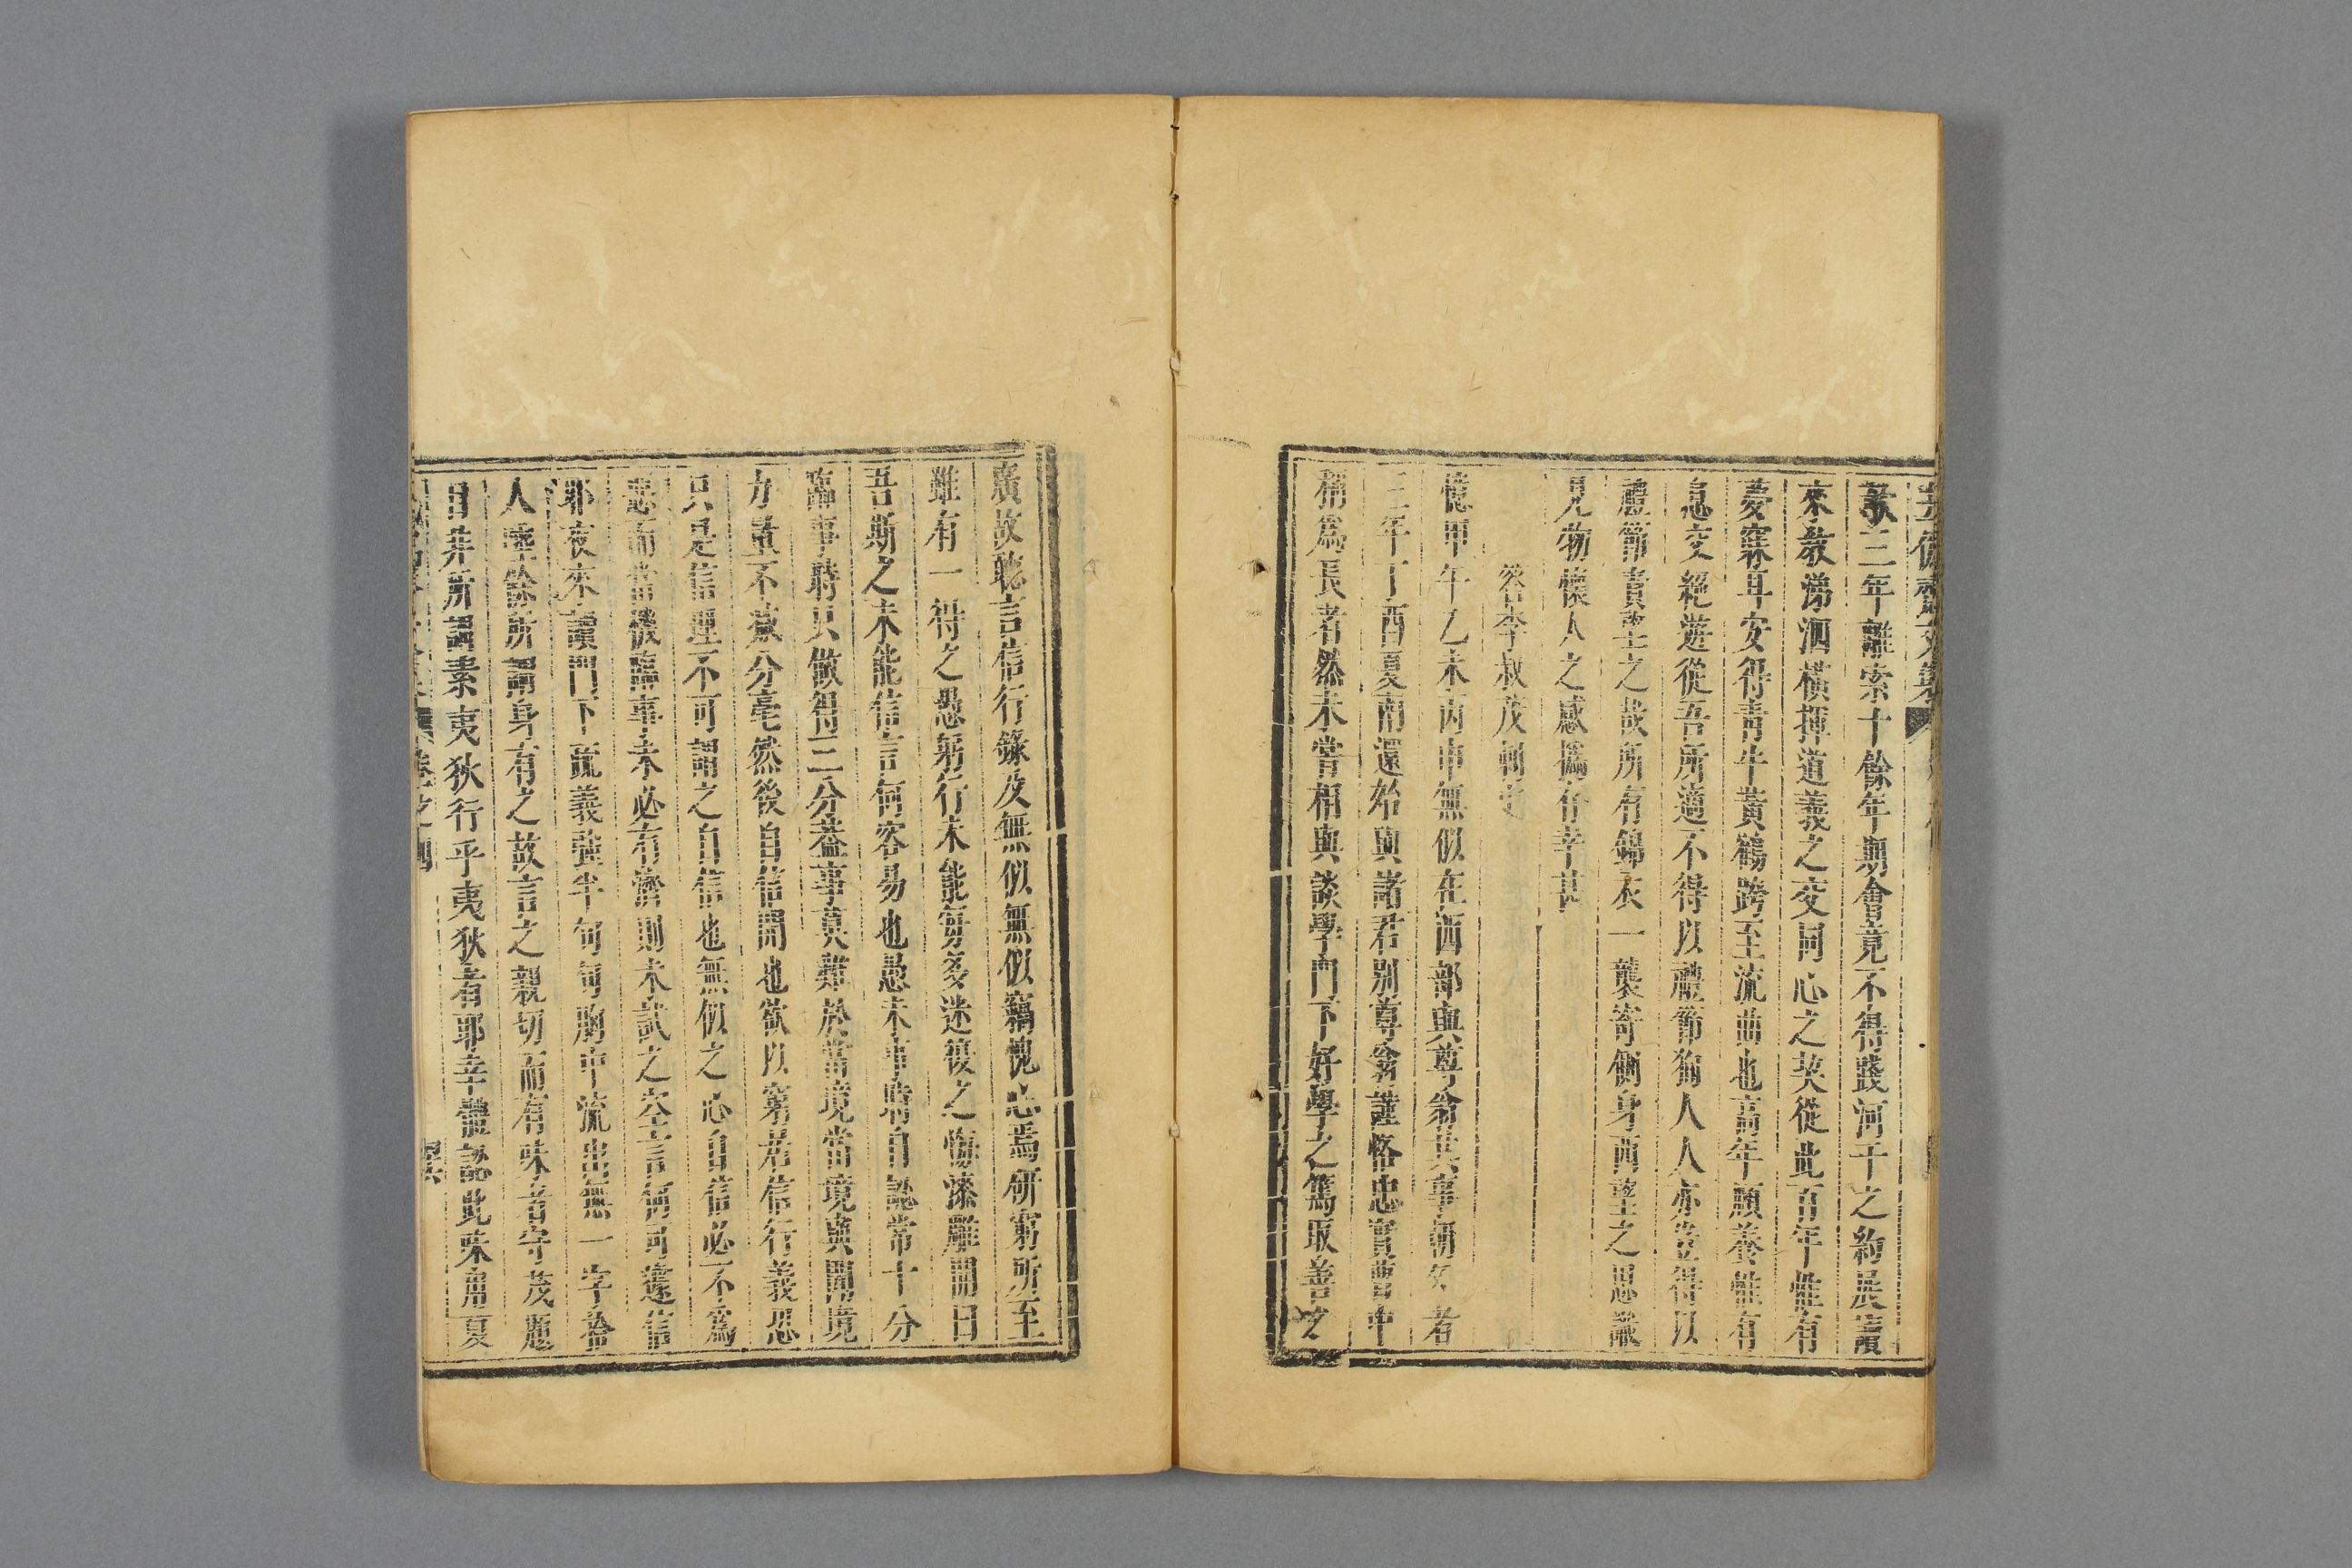 教三年離索十餘年期會竟不得踐河干之約展讀
來教涕泗橫揮道義之交同心之契從此百年惟有
夢寐耳安得靑牛黃鶴跨至流曲也高年頤養惟有
息交絕遊從吾所適不得以禮節狥人人亦豈得以
禮節責望之哉所有錦衣一襲寄側身西望之思識
見物懷人之感撝存幸甚
答李叔茂
憶甲午乙未丙申無似在西部與尊翁共事朝夕者
三年丁酉夏南還始與諸君別尊翁謹恪忠實曹中
稱爲長者然未嘗相與談學門下好學之篤取善之
廣故聽言信行錄及無似無似竊愧心焉硏窮所至
雖有一得之愚躬行未能毎多迷復之悔漆雕開曰
吾斯之未能信言何容易也愚未事時自認常十分
臨事時只做得三分葢事莫難於當境當境與閒境
力量不減分毫然後自信開也欲以窮居信行義恐
只是信理不可謂之自信也無似之心自信必不爲
惡而當機臨事未必有濟則未試之空言何可遽信
耶夜來讀門下疏義強半句句胸中流出無一字拾
人唾餘所謂身有之故言之親切而有味者守茂邇
日非所謂素夷狄行乎夷狄者耶幸體認此味用夏